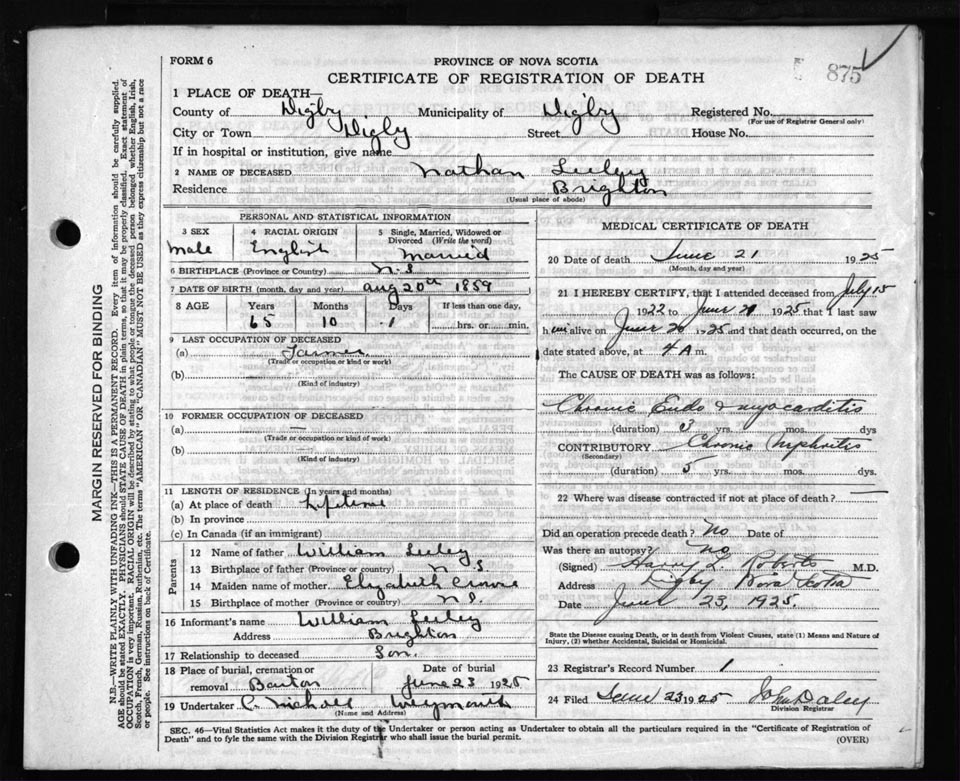 FORM 6
PROVINCE OF NOVA SCOTIA
CERTIFICATE OF REGISTRATION OF DEATH
875
1 PLACE OF DEATH—
County of Digby Municipality of Digby Registered No.
(For use of Registrar General only)
City or Town Digby Street House No.
If in hospital or institution, give name
2 NAME OF DECEASED Nathan
Residence Brighton
(Usual place of abode)
PERSONAL AND STATISTICAL INFORMATION
3 SEX 4 RACIAL ORIGIN 5 Single, Married, Widowed or Divorced (Write the word)
Male English Married
6 BIRTHPLACE (Province or Country) N.S
7 DATE OF BIRTH (month, day and year) Aug 20th 1859
8 AGE Years Months Days If less than one day,
65 10 1 hrs. or min.
9 LAST OCCUPATION OF DECEASED
(a) Farmer
(Trade or occupation or kind of work)
(b)
(Kind of industry)
10 FORMER OCCUPATION OF DECEASED
(a) —
(Trade or occupation or kind of work)
(b) —
(Kind of industry)
11 LENGTH OF RESIDENCE (in years and months)
(a) At place of death Lifetime
(b) In province
(c) In Canada (if an immigrant)
Parents
12 Name of father William
13 Birthplace of father (Province or country) N S
14 Maiden name of mother Elizabeth
15 Birthplace of mother (Province or country) N.S.
16 Informant's name William
Address Brighton
17 Relationship to deceased Son.
18 Place of burial, cremation or removal Barton Date of burial June 23 1925
19 Undertaker C. Nichols Weymouth
(Name and Address)
MEDICAL CERTIFICATE OF DEATH
20 Date of death June 21 1925
(Month, day and year)
21 I HEREBY CERTIFY, that I attended deceased from July 15
1922 to June 1925 that I last saw
him alive on June 20 1925 and that death occurred, on
date stated above, at 4 A m.
The CAUSE OF DEATH was as follows:
Chronic Endo & myocarditis
(duration) 3 yrs. mos. dys
CONTRIBUTORY Chronic Nephritis
(Secondary)
(duration) 5 yrs. mos. dys.
22 Where was disease contracted if not at place of death? —
Did an operation precede death? No Date of
Was there an autopsy? No
(Signed) Harry L. Roberts M.D.
Address Digby Nova Scotia
Date June 23, 1925.
State the Disease causing Death, or in death from Violent Causes, state (1) Means and Nature of
Injury, (2) whether Accidental, Suicidal or Homicidal.
23 Registrar's Record Number 1
24 Filed June 23 1925 John Daley
Division Registrar
SEC. 46—Vital Statistics Act makes it the duty of the Undertaker or person acting as Undertaker to obtain all the particulars required in the "Certificate of Registration of
Death" and to fyle the same with the Division Registrar who shall issue the burial permit.
(OVER)
MARGIN RESERVED FOR BINDING
N.B.—WRITE PLAINLY WITH UNFADING INK—THIS IS A PERMANENT RECORD. Every item of information should be carefully supplied.
AGE should be stated EXACTLY. PHYSICIANS should STATE CAUSE OF DEATH in plain terms, so that it may be properly classified. Exact statement of
OCCUPATION is very important. RACIAL ORIGIN will be described by stating to what people or tongue the deceased person belonged whether English, Irish,
Scotch, French, German, Russian, Ruthenian, etc. The terms "AMERICAN" OR "CANADIAN" MUST NOT BE USED as they express citizenship but not a race
or people. See instructions on back of Certificate.